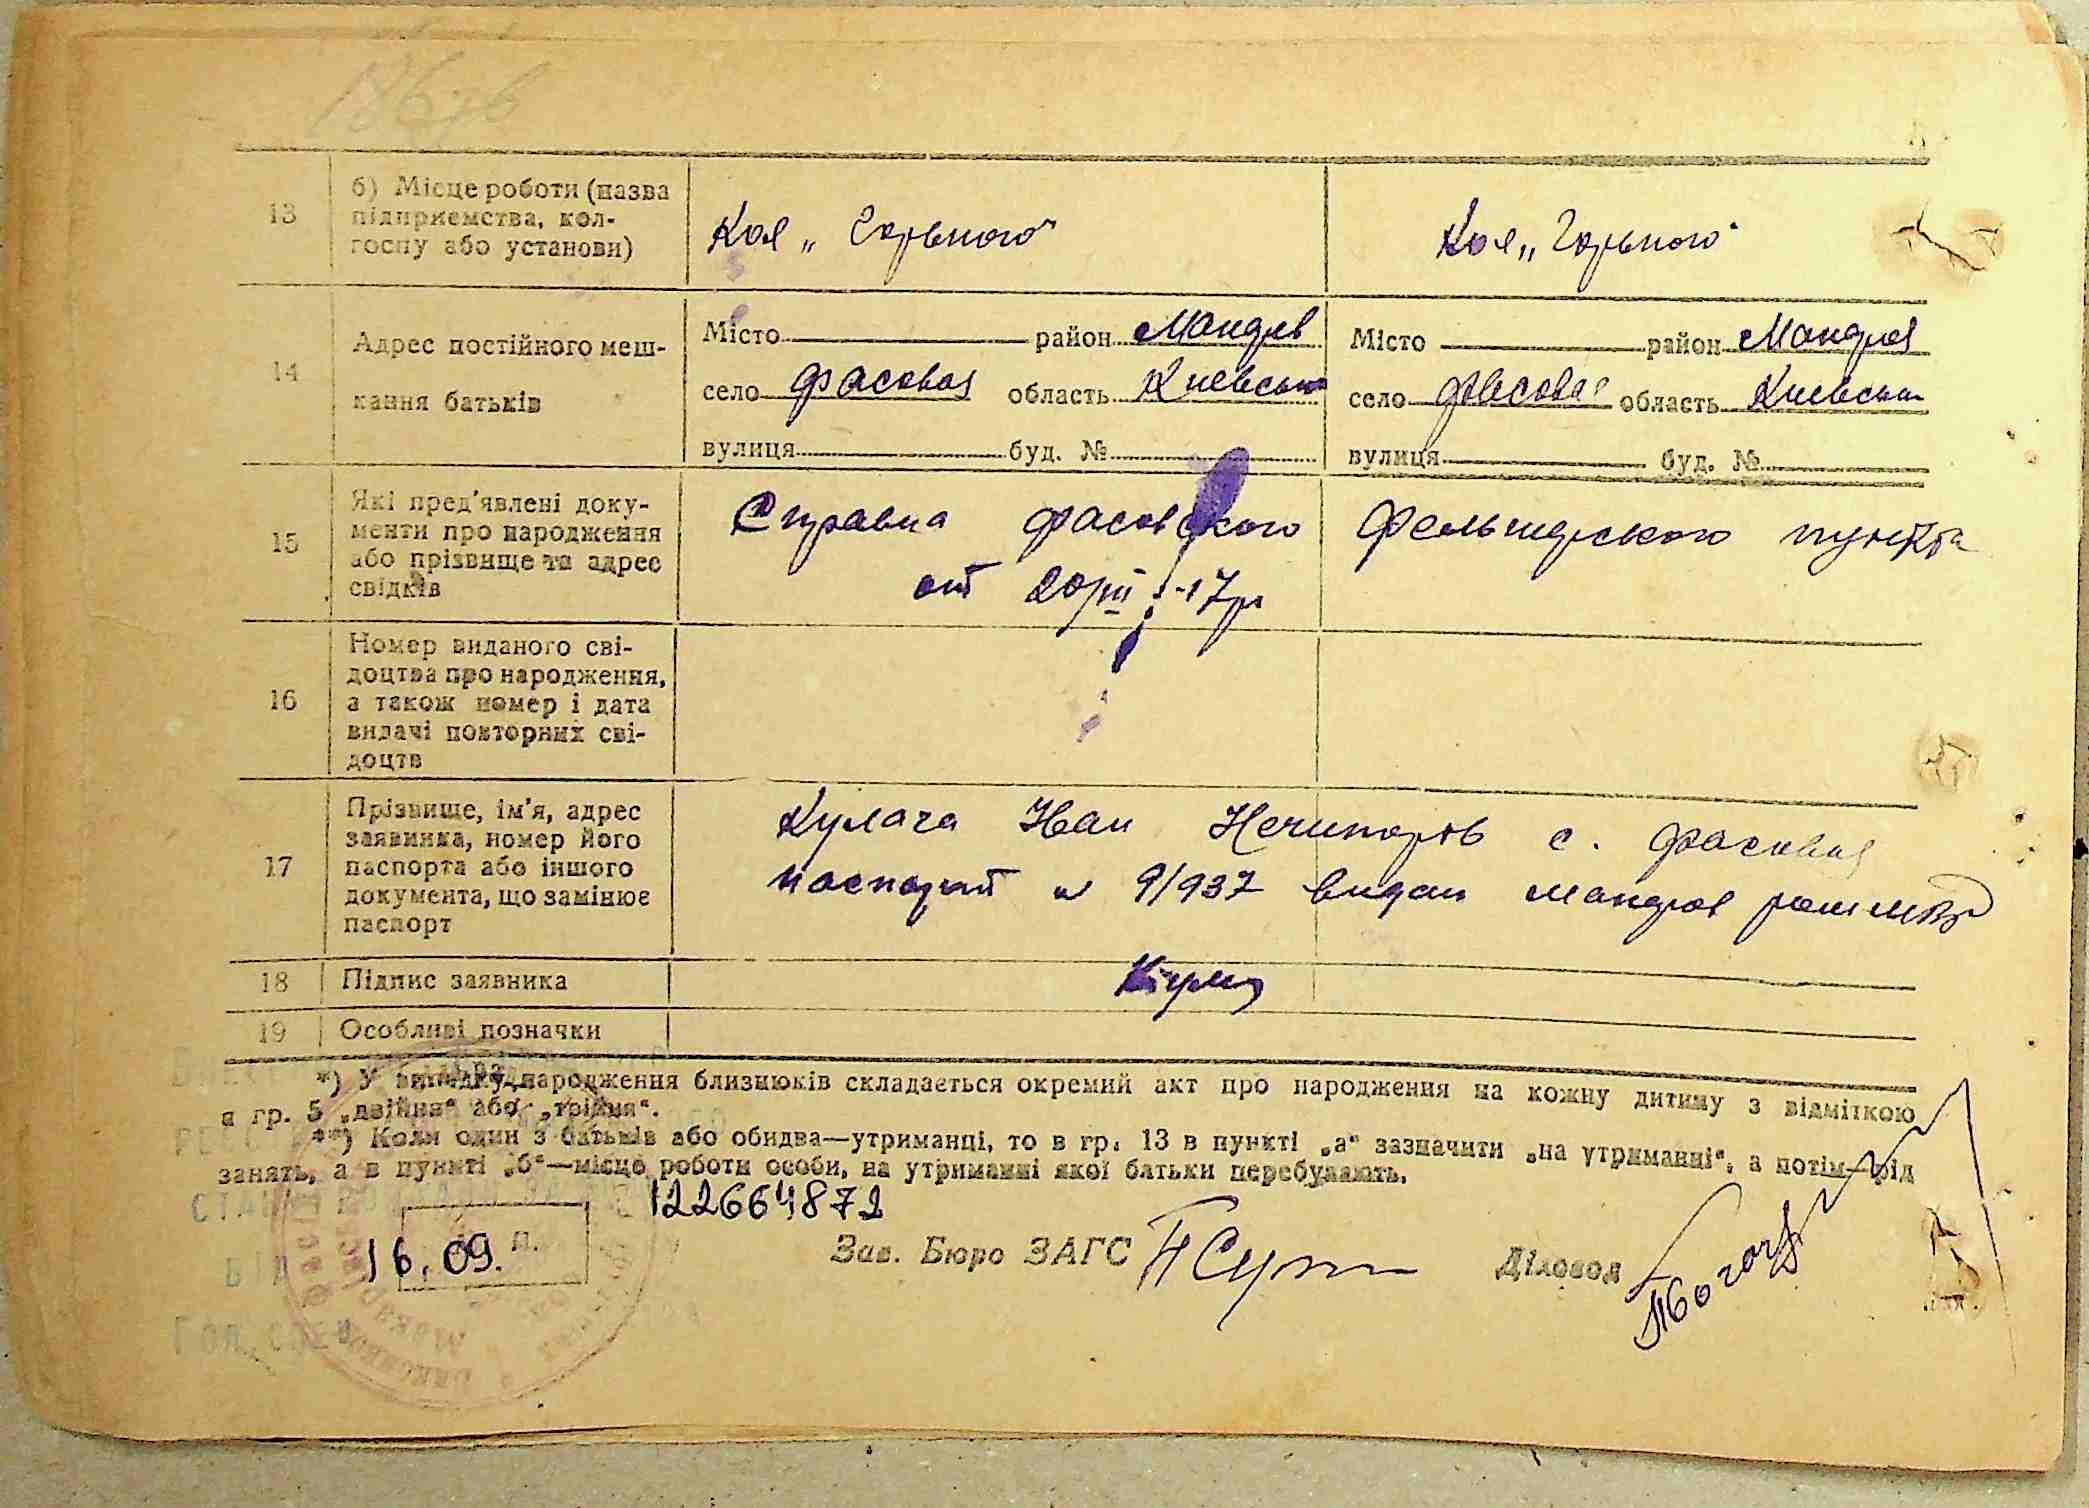 13
б) Місце роботи (назва
підприємства, кол-
госпу або установи)
Кол „Горьного"
Кол „Горьного"
14
Адрес постійного меш-
кання батьків
Місто район Макарів
село Фасовая область Киевська
вулиця буд. №
Місто район Макаров
село Фасовая область Киевська
вулиця буд. №
15
Які пред'явлені доку-
менти про народження
або прізвище та адрес
свідків
Справка фасовского фельшерського пункта
от 20/III -47р
16
Номер виданого сві-
доцтва про народження,
а також номер і дата
видачі повторних сві-
доцтв
17
Прізвище, ім'я, адрес
заявника, номер його
паспорта або іншого
документа, що замінює
паспорт
Кулага Іван Нечипоров с. Фасовая
паспорт № 9/937 видан Макаров
18
Підпис заявника
19
Особливі позначки
*) У випадку народження близнюків складається окремий акт про народження на кожну дитину з відміткою
в гр. 5 „двійня" або „трійня".
**) Коли один з батьків або обидва—утриманці, то в гр. 13 в пункті „а" зазначити „на утриманні", а потім—рід
занять, а в пункті „б"—місце роботи особи, на утриманні якої батьки перебувають.
122664872
16.09.
м. п.
Зав. Бюро ЗАГС
Діловод